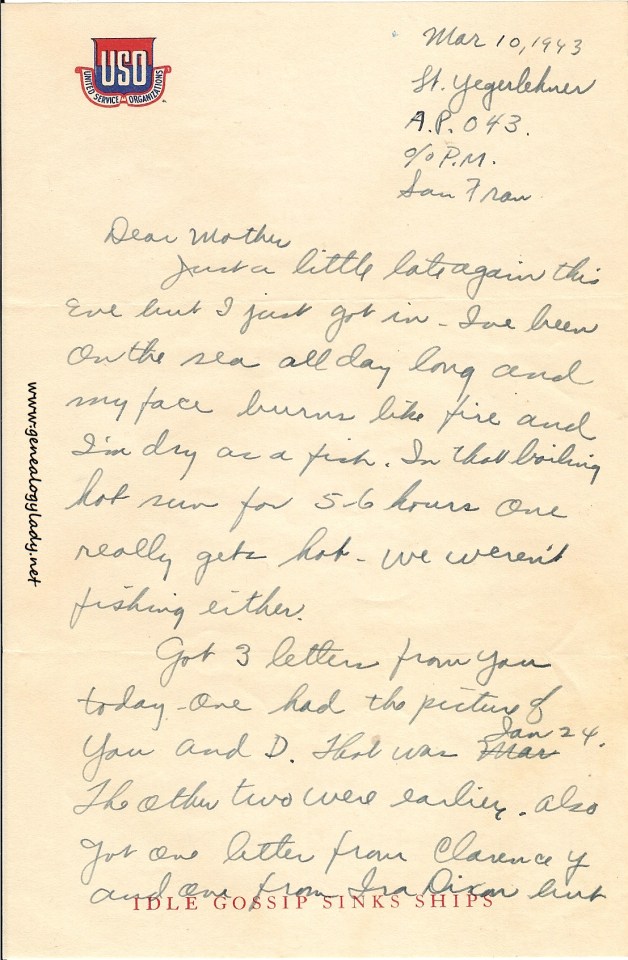 USO
UNITED SERVICE ORGANIZATIONS
Mar 10, 1943
Lt. Yegerlehner
A.P.O 43.
c/o P.M.
San Fran
Dear Mother
Just a little late again this
Eve but I just got in - I've been
On the sea all day long and
my face burns like fire and
I'm dry as a fish. In that boiling
hot sun for 5-6 hours One
really gets hot - we weren't
fishing either.
Got 3 letters from you
today - One had the picture of
You and D. That was Mar Jan 24.
The other two were earlier. also
got one letter from Clarence Y
and one from Ira Dixon but
IDLE GOSSIP SINKS SHIPS
www.genealogylady.net